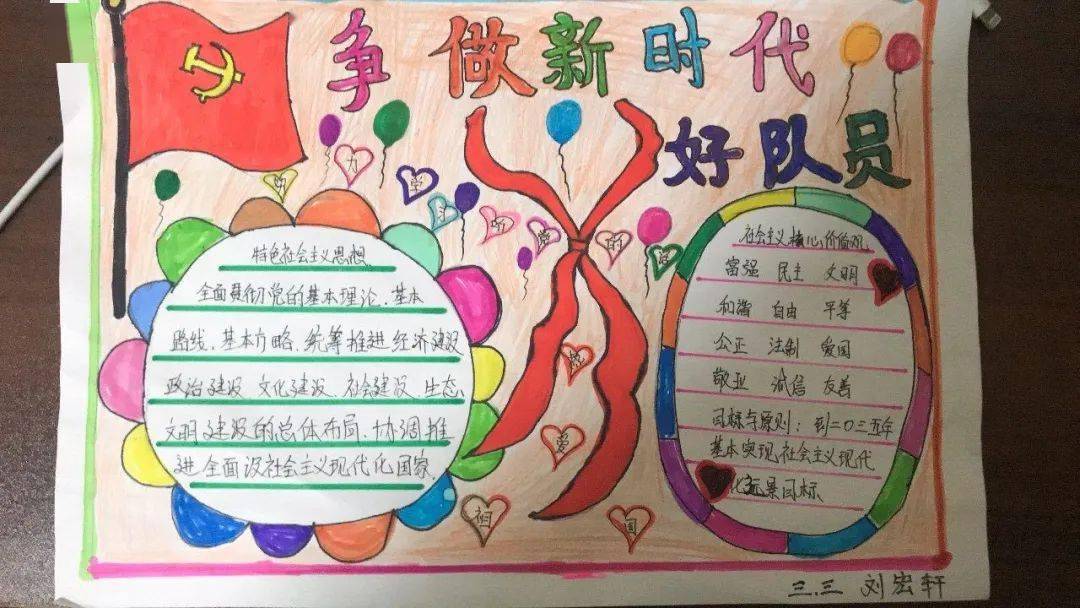 争做新时代
好队员
努
力
学
习
听
党
的
话
热
爱
祖
国
特色社会主义思想
全面贯彻党的基本理论、基本
路线、基本方略、统筹推进经济建设
政治建设、文化建设、社会建设、生态
文明建设的总体布局、协调推
进全面设社会主义现代化国家
社会主义核心价值观
富强 民主 文明
和谐 自由 平等
公正 法制 爱国
敬业 诚信 友善
目标与原则：到二〇三五年
基本实现社会主义现代
化远景目标
三.三 刘宏轩